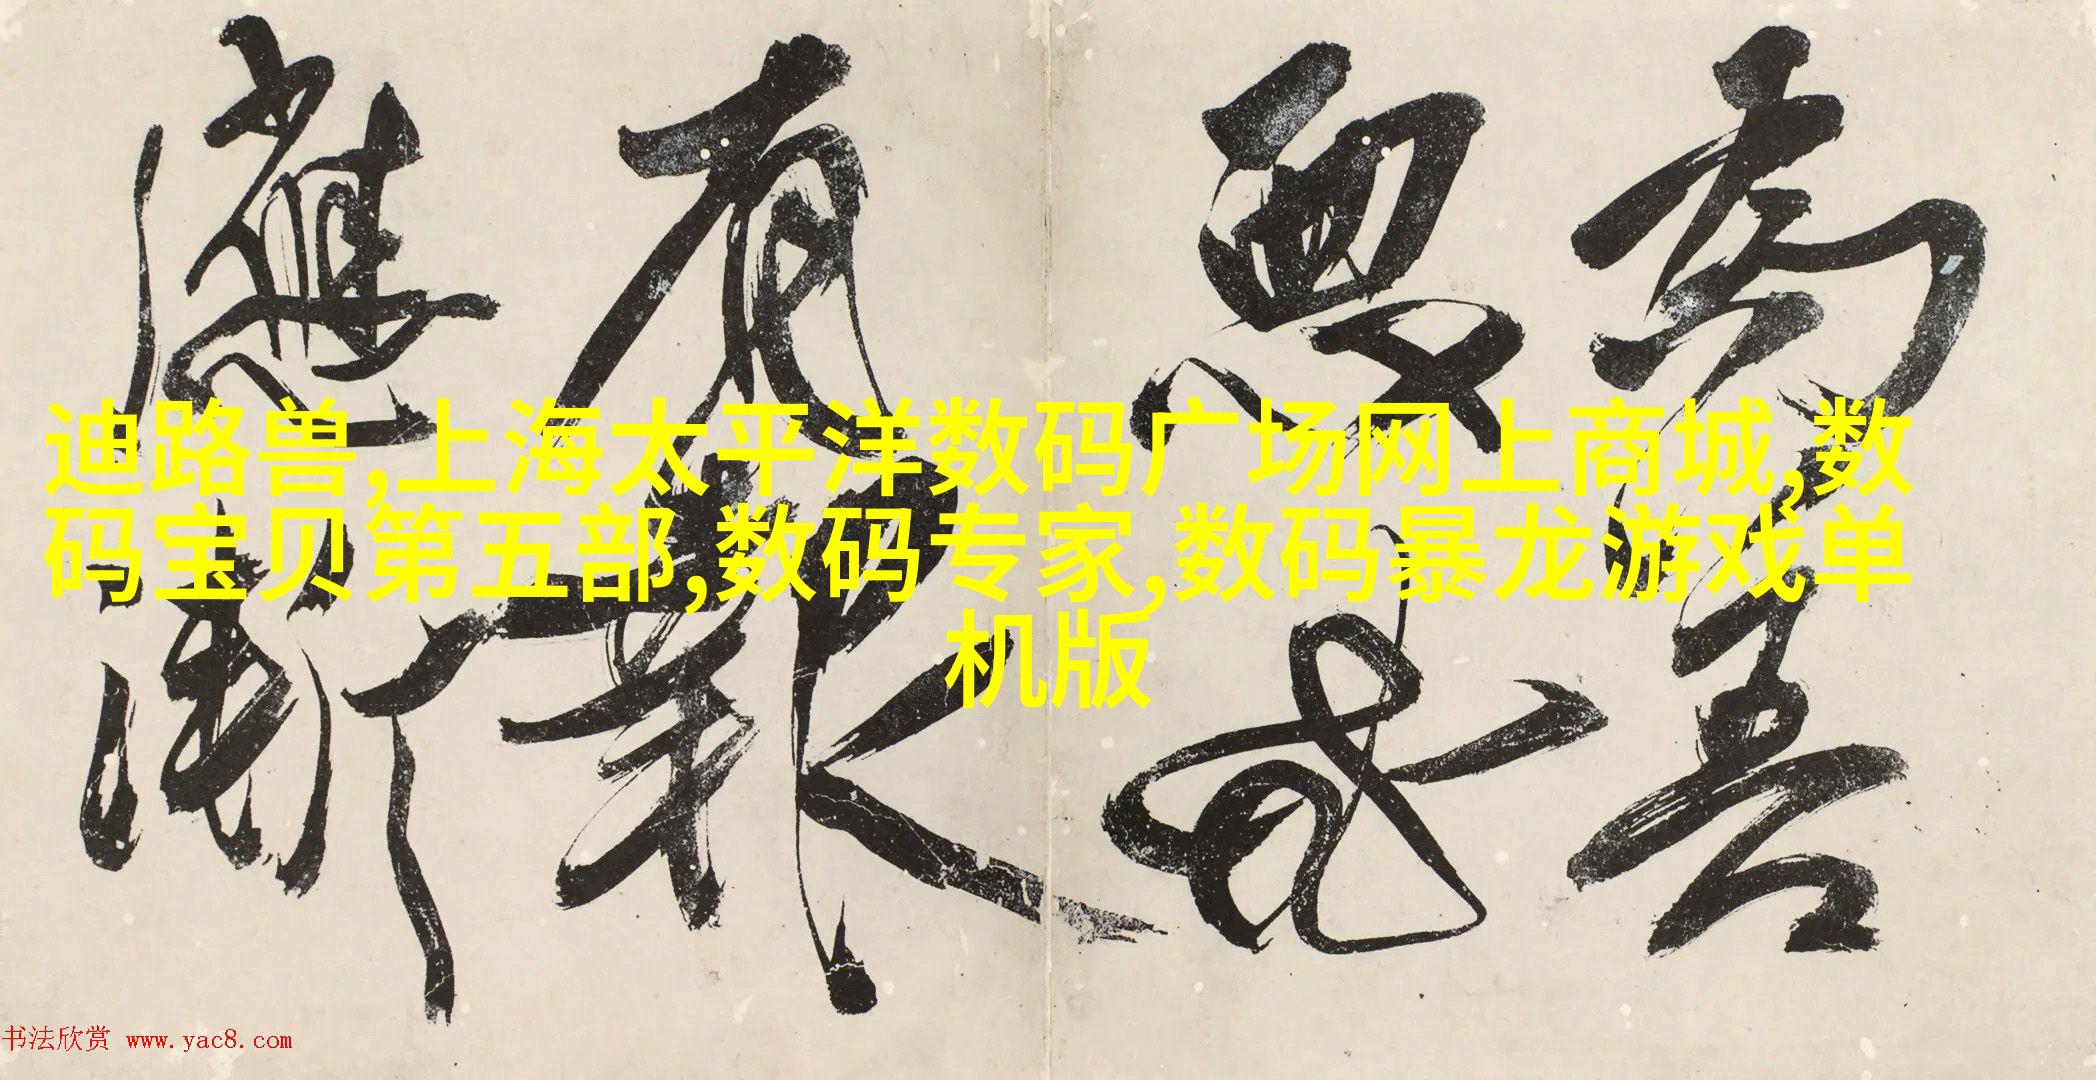 為善
惡
有報
應
迪路兽,上海太平洋数码广场网上商城,数
码宝贝第五部,数码专家,数码暴龙游戏单
机版
书法欣赏 www.yac8.com